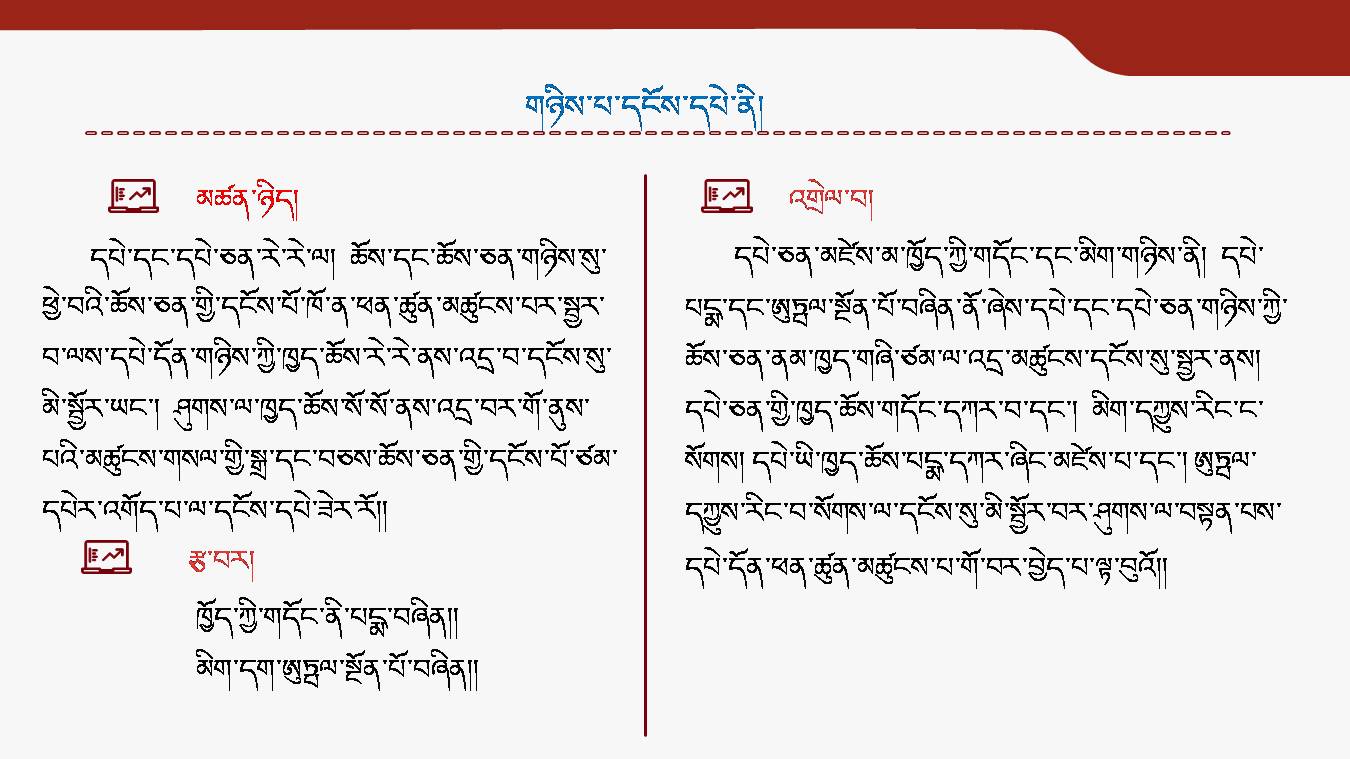 གཉིས་པ་དངོས་དཔེ་ནི།
མཚན་ཉིད།
དཔེ་དང་དཔེ་ཅན་རེ་རེ་ལ།  ཆོས་དང་ཆོས་ཅན་གཉིས་སུ་
ཕྱེ་བའི་ཆོས་ཅན་གྱི་དངོས་པོ་ཁོ་ན་ཕན་ཚུན་མཚུངས་པར་སྦྱར་
བ་ལས་དཔེ་དོན་གཉིས་ཀྱི་ཁྱད་ཆོས་རེ་རེ་ནས་འདྲ་བ་དངོས་སུ་
མི་སྦྱོར་ཡང་།  ཤུགས་ལ་ཁྱད་ཆོས་སོ་སོ་ནས་འདྲ་བར་གོ་ནུས་
པའི་མཚུངས་གསལ་གྱི་སྒྲ་དང་བཅས་ཆོས་ཅན་གྱི་དངོས་པོ་ཙམ་
དཔེར་འགོད་པ་ལ་དངོས་དཔེ་ཟེར་རོ།།
རྩ་བར།
ཁྱོད་ཀྱི་གདོང་ནི་པདྨ་བཞིན།།
མིག་དག་ཨུཏྤལ་སྔོན་པོ་བཞིན།།
འགྲེལ་བ།
དཔེ་ཅན་མཛེས་མ་ཁྱོད་ཀྱི་གདོང་དང་མིག་གཉིས་ནི།  དཔེ་
པདྨ་དང་ཨུཏྤལ་སྔོན་པོ་བཞིན་ནོ་ཞེས་དཔེ་དང་དཔེ་ཅན་གཉིས་ཀྱི་
ཆོས་ཅན་ནམ་ཁྱད་གཞི་ཙམ་ལ་འདྲ་མཚུངས་དངོས་སུ་སྦྱར་ནས།
དཔེ་ཅན་གྱི་ཁྱད་ཆོས་གདོང་དཀར་བ་དང་།  མིག་དཀྱུས་རིང་ང་
སོགས། དཔེ་ཡི་ཁྱད་ཆོས་པདྨ་དཀར་ཞིང་མཛེས་པ་དང་། ཨུཏྤལ་
དཀྱུས་རིང་བ་སོགས་ལ་དངོས་སུ་མི་སྦྱོར་བར་ཤུགས་ལ་བསྟན་པས་
དཔེ་དོན་ཕན་ཚུན་མཚུངས་པ་གོ་བར་བྱེད་པ་ལྟ་བུའོ།།